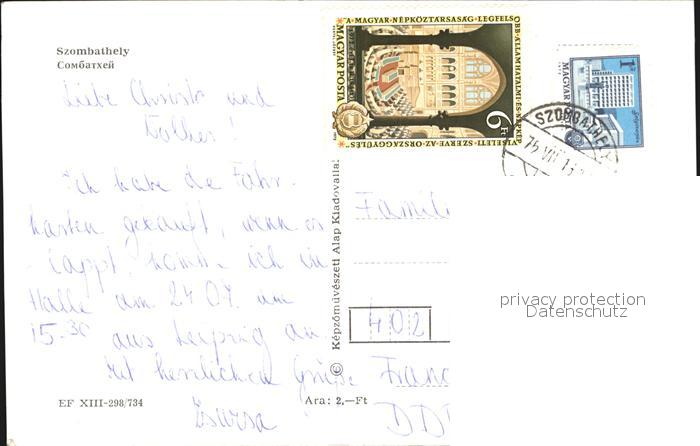 Szombathely
Сомбатхей
Liebe Christa und
Volker!
Ich habe die Fahr-
karten gekauft, wenn es
klappt, komme ich in
Halle am 24 07. um
15.30 aus Leipzig an.
Mit herzlichen Grüße
Zsuzsa
EF XIII-298/734
Ara: 2.—Ft
© Képzőművészeti Alap Kiadóvalla:
A MAGYAR NÉPKÖZTÁRSASÁG LEGFELSŐBB ÁLLAMHATALMI ÉS NÉPKÉPVISELETI SZERVE AZ ORSZÁGGYŰLÉS
MAGYAR POSTA
6 Ft
1
MAGYAR
SZOMBATHELY
75 VII
Famili
402
Franc
DD
privacy protection
Datenschutz